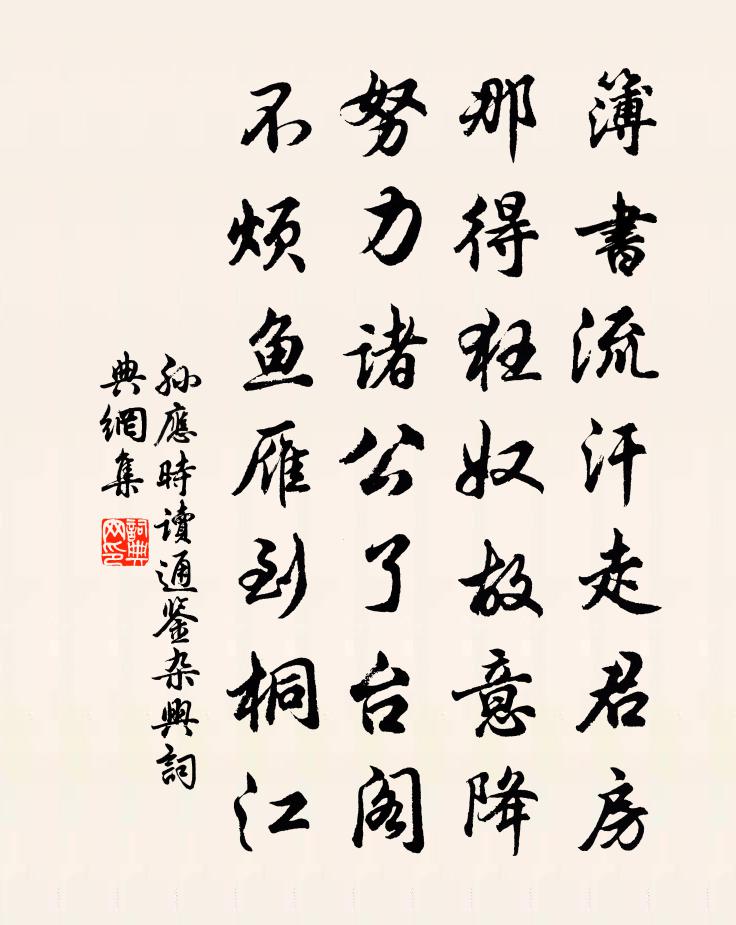 簿書流汗走君房
那得狂奴故意降
努力诸公了台阁
不烦鱼雁到桐江
孙應時读通鉴杂興詞
典網集
詞典網印